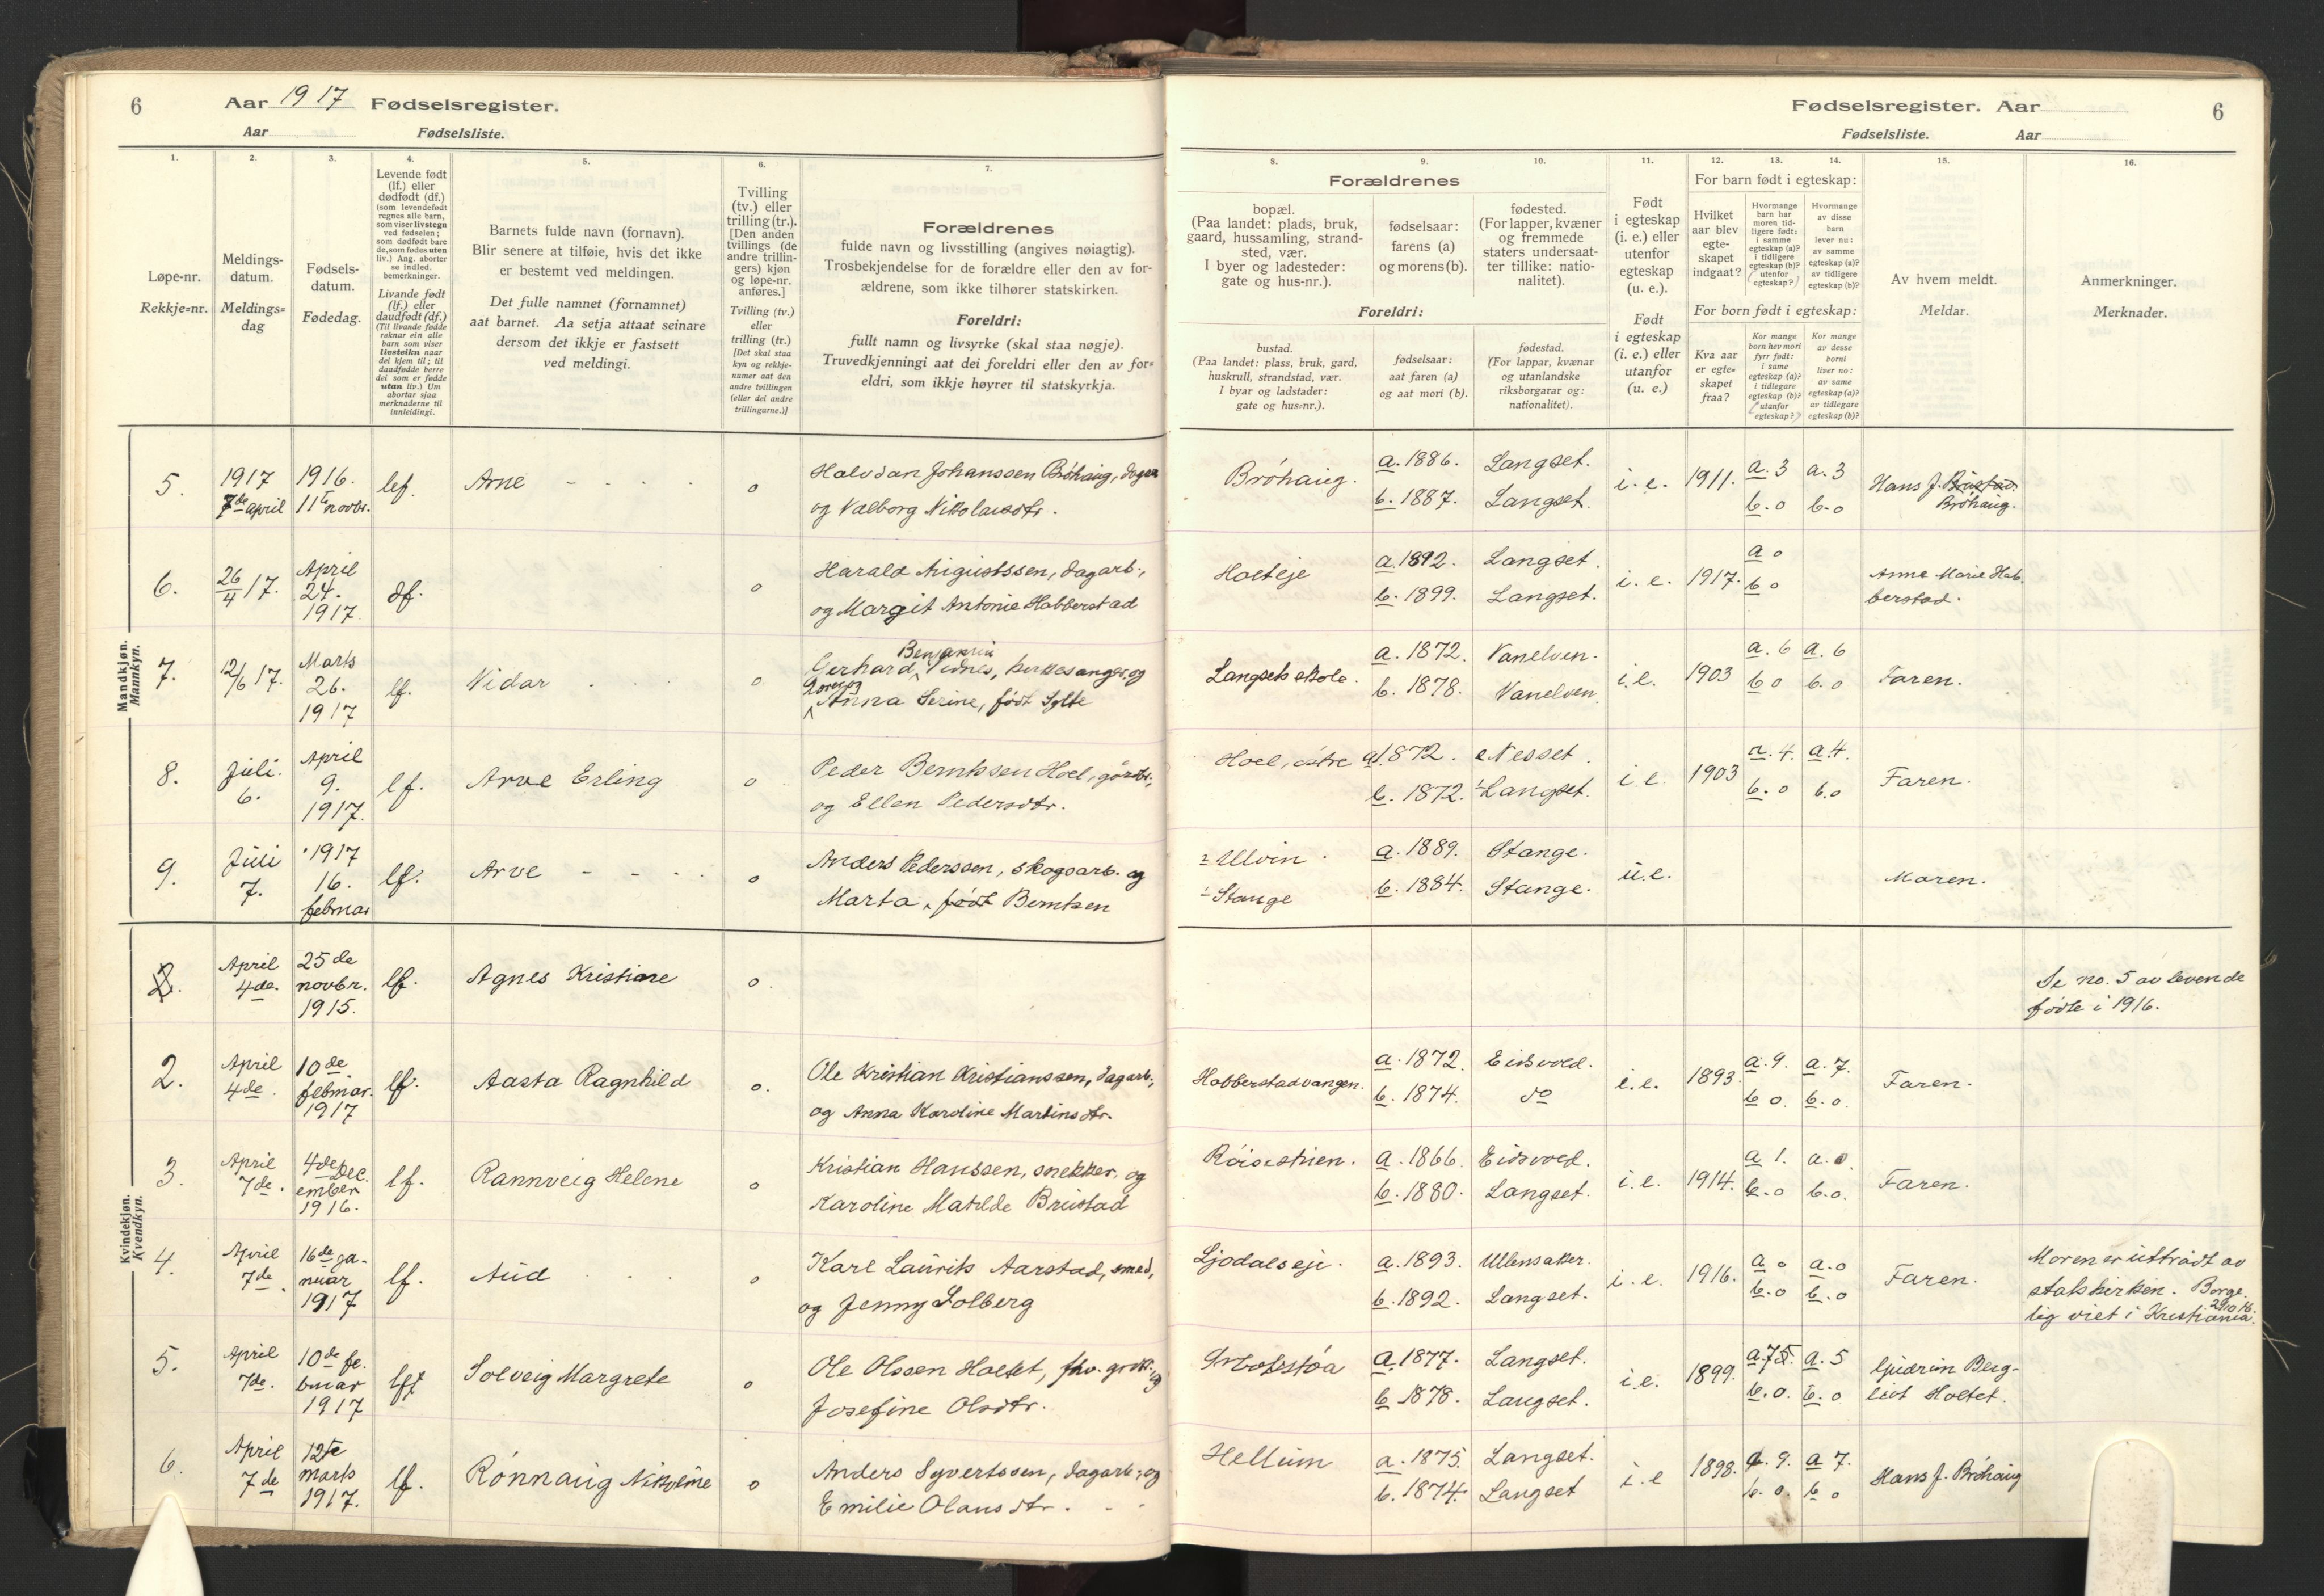 6 Aar 1917 Fødselsregister.
Aar Fødselsliste.
Fødselsregister. Aar 6
Fødselsliste. Aar
1.
Løpe-nr.
Rekkje=nr.
2.
Meldings-
datum.
Meldings=
dag
3.
Fødsels-
datum.
Fødedag.
4.
Levende født
(lf.) eller
dødfødt (df.)
(som levendefødt
regnes alle barn,
som viser livstegn
ved fødselen;
som dødfødt bare
de, som fødes uten
liv.) Ang. aborter
se indled.
bemerkninger.
Livande født
(lf.) eller
daudfødt (df.)
(Til livande fødde
reknar ein alle
barn som viser
livsteikn naar
dei kjem til; til
daudfødde berre
dei som er fødde
utan liv.) Um
abortar sjaa
merknaderne til
innleidingi.
5.
Barnets fulde navn (fornavn).
Blir senere at tilføie, hvis det ikke
er bestemt ved meldingen.
Det fulle namnet (fornamnet)
aat barnet. Aa setja attaat seinare
dersom det ikkje er fastsett
ved meldingi.
6.
Tvilling
(tv.) eller
trilling (tr.).
[Den anden
tvillings (de
andre trillin-
gers) kjøn
og løpe-nr.
anføres.]
Tvilling (tv.)
eller
trilling (tr.)
[Det skal staa
kyn og rekkje-
numer aat den
andre tvillingen
(eller dei andre
trillingarne.)]
7.
Forældrenes
fulde navn og livsstilling (angives nøiagtig).
Trosbekjendelse for de forældre eller den av for-
ældrene, som ikke tilhører statskirken.
Foreldri:
fullt namn og livsyrke (skal staa nøgje).
Truvedkjenningi aat dei foreldri eller den av for=
eldri, som ikkje høyrer til statskyrkja.
8.
Forældrenes
bopæl.
(Paa landet: plads, bruk,
gaard, hussamling, strand-
sted, vær.
I byer og ladesteder:
gate og hus-nr.).
Foreldri:
bustad.
(Paa landet: plass, bruk, gard,
huskrull, strandstad, vær.
I byar og ladstader:
gate og hus=nr.).
9.
fødselsaar:
farens (a)
og morens (b).
fødselsaar:
aat faren (a)
og aat mori (b).
10.
fødested.
(For lapper, kvæner
og fremmede
staters undersaat-
ter tillike: natio-
nalitet).
fødestad.
(For lappar, kvænar
og utanlandske
riksborgarar og:
nationalitet).
11.
Født
i egteskap
(i. e.) eller
utenfor
egteskap
(u. e.).
Født
i egteskap
(i. e.) eller
utanfor
(u. e.)
For barn født i egteskap:
12.
Hvilket
aar blev
egte-
skapet
indgaat?
13.
Hvormange
barn har
moren tid-
ligere født:
i samme
egteskap (a)?
i tidligere
egteskap (b)?
utenfor
egteskap?
14.
Hvormange
av disse
barn
lever nu:
av samme
egteskap (a)?
av tidligere
egteskap (b)?
For born født i egteskap:
Kva aar
er egte=
skapet
fraa?
Kor mange
born hev mori
fyrr født:
i same
egteskap (a)?
i tidlegare
egteskap (b)?
utanfor
egteskap?
Kor mange
av desse
borni
liver no:
av same
egteskap (a)?
av tidlegare
egteskap (b)?
15.
Av hvem meldt.
Meldar.
16.
Anmerkninger.
Merknader.
Mandkjøn.
Mannkyn.
5. 1917 7de april 1916. 11te novbr. lef. Arne o
Halvdan Johanssen Bróhaug, dagarb
og Valborg Nikolausdtr.
Bróhaug. a. 1886. Langset. i. e. 1911. a. 3 a. 3 Hans J. Brustad.
b. 1887. Langset. b. 0 b. 0 Bróhaug.
6. 26/4 17. April 24. 1917 df. o
Harald Augustssen, dagarb.,
og Margit Antonie Habberstad
Holteje a. 1892. Langset. i. e. 1917. a 0 Anna Marie Hab-
b. 1899. Langset. b 0 berstad.
7. 12/6 17. Marts 26. 1917 lf. Vidar o
Benjamin
Gerhard, Vidnes, kirkesanger, og
Anna Serine, født Sylte
Langset skole. a. 1872. Vanelven. i. e. 1903 a. 6 a. 6 Faren.
b. 1878. Vanelven. b 0 b. 0
8. Juli. 6. April 9. 1917. lf. Arve Erling o
Peder Berntssen Hoel, gårdbr.,
og Ellen Pedersdtr.
Hoel, østre a. 1872. Nesset. i. e. 1903 a. 4. a. 4. Faren.
b. 1872. Langset. b. 0 b. 0
9. Juli 7. 1917 16. februar lf. Arve o
Anders Pederssen, skogsarb. og
Marta, født Berntsen
Ulvin. a. 1889. Stange. u. e. Moren.
Stange b. 1884. Stange.
Kvindekjøn.
Kvendkyn.
2. April 4de. 25de novbr. 1915. lf. Agnes Kristine o.
Se no. 5 av levende
fødte i 1916.
2. April 4de. 10de februar. 1917 lf. Aasta Ragnhild o.
Ole Kristian Kristianssen, dagarb.,
og Anna Karoline Martinsdtr.
Habberstadvangen. a. 1872. Eidsvold. i. e. 1893. a. 9. a. 7. Faren.
b. 1874. do b 0. b. 0.
3. April 7de. 4de Dec. ember 1916. lf. Rannveig Helene o
Kristian Hanssen, snekker, og
Karoline Matilde Brustad
a. 1866. Eidsvold. i. e. 1914. a 1. a. 0 Faren.
b. 1880. Langset. b. 0 b. 0.
4. April 7de. 16de ja- nuar 1917 lf. Aud o
Karl Laurits Aarstad, smed,
og Jenny Solberg
Ljodalseje. a. 1893. Ullensaker. i. e. 1916. a 0 a. 0 Faren.
b. 1892. Langset. b. 0 b. 0
Moren er uttrådt av
statskirken. Borger-
lig viet i Kristiania.
5. April 7de. 10de fe- bruar 1917 lf. Solveig Margrete o
Ole Olssen Holtet, fhv. grdbr. og
Josefine Olsdtr.
a. 1877. Langset. i. e. 1899. a. a. 5 Berg-
b. 1878. Langset. b. 0. b. 0 liot Holtet.
6. April 7de 12te marts 1917. lf. Rónnaug Nikoline o
Anders Syvertssen, dagarb., og
Emilie Olausdtr.
Hellum a. 1875. Langset. i. e 1898. a. 9. a 7. Hans J. Bróhaug
b. 1874. Langset b. 0. b 0